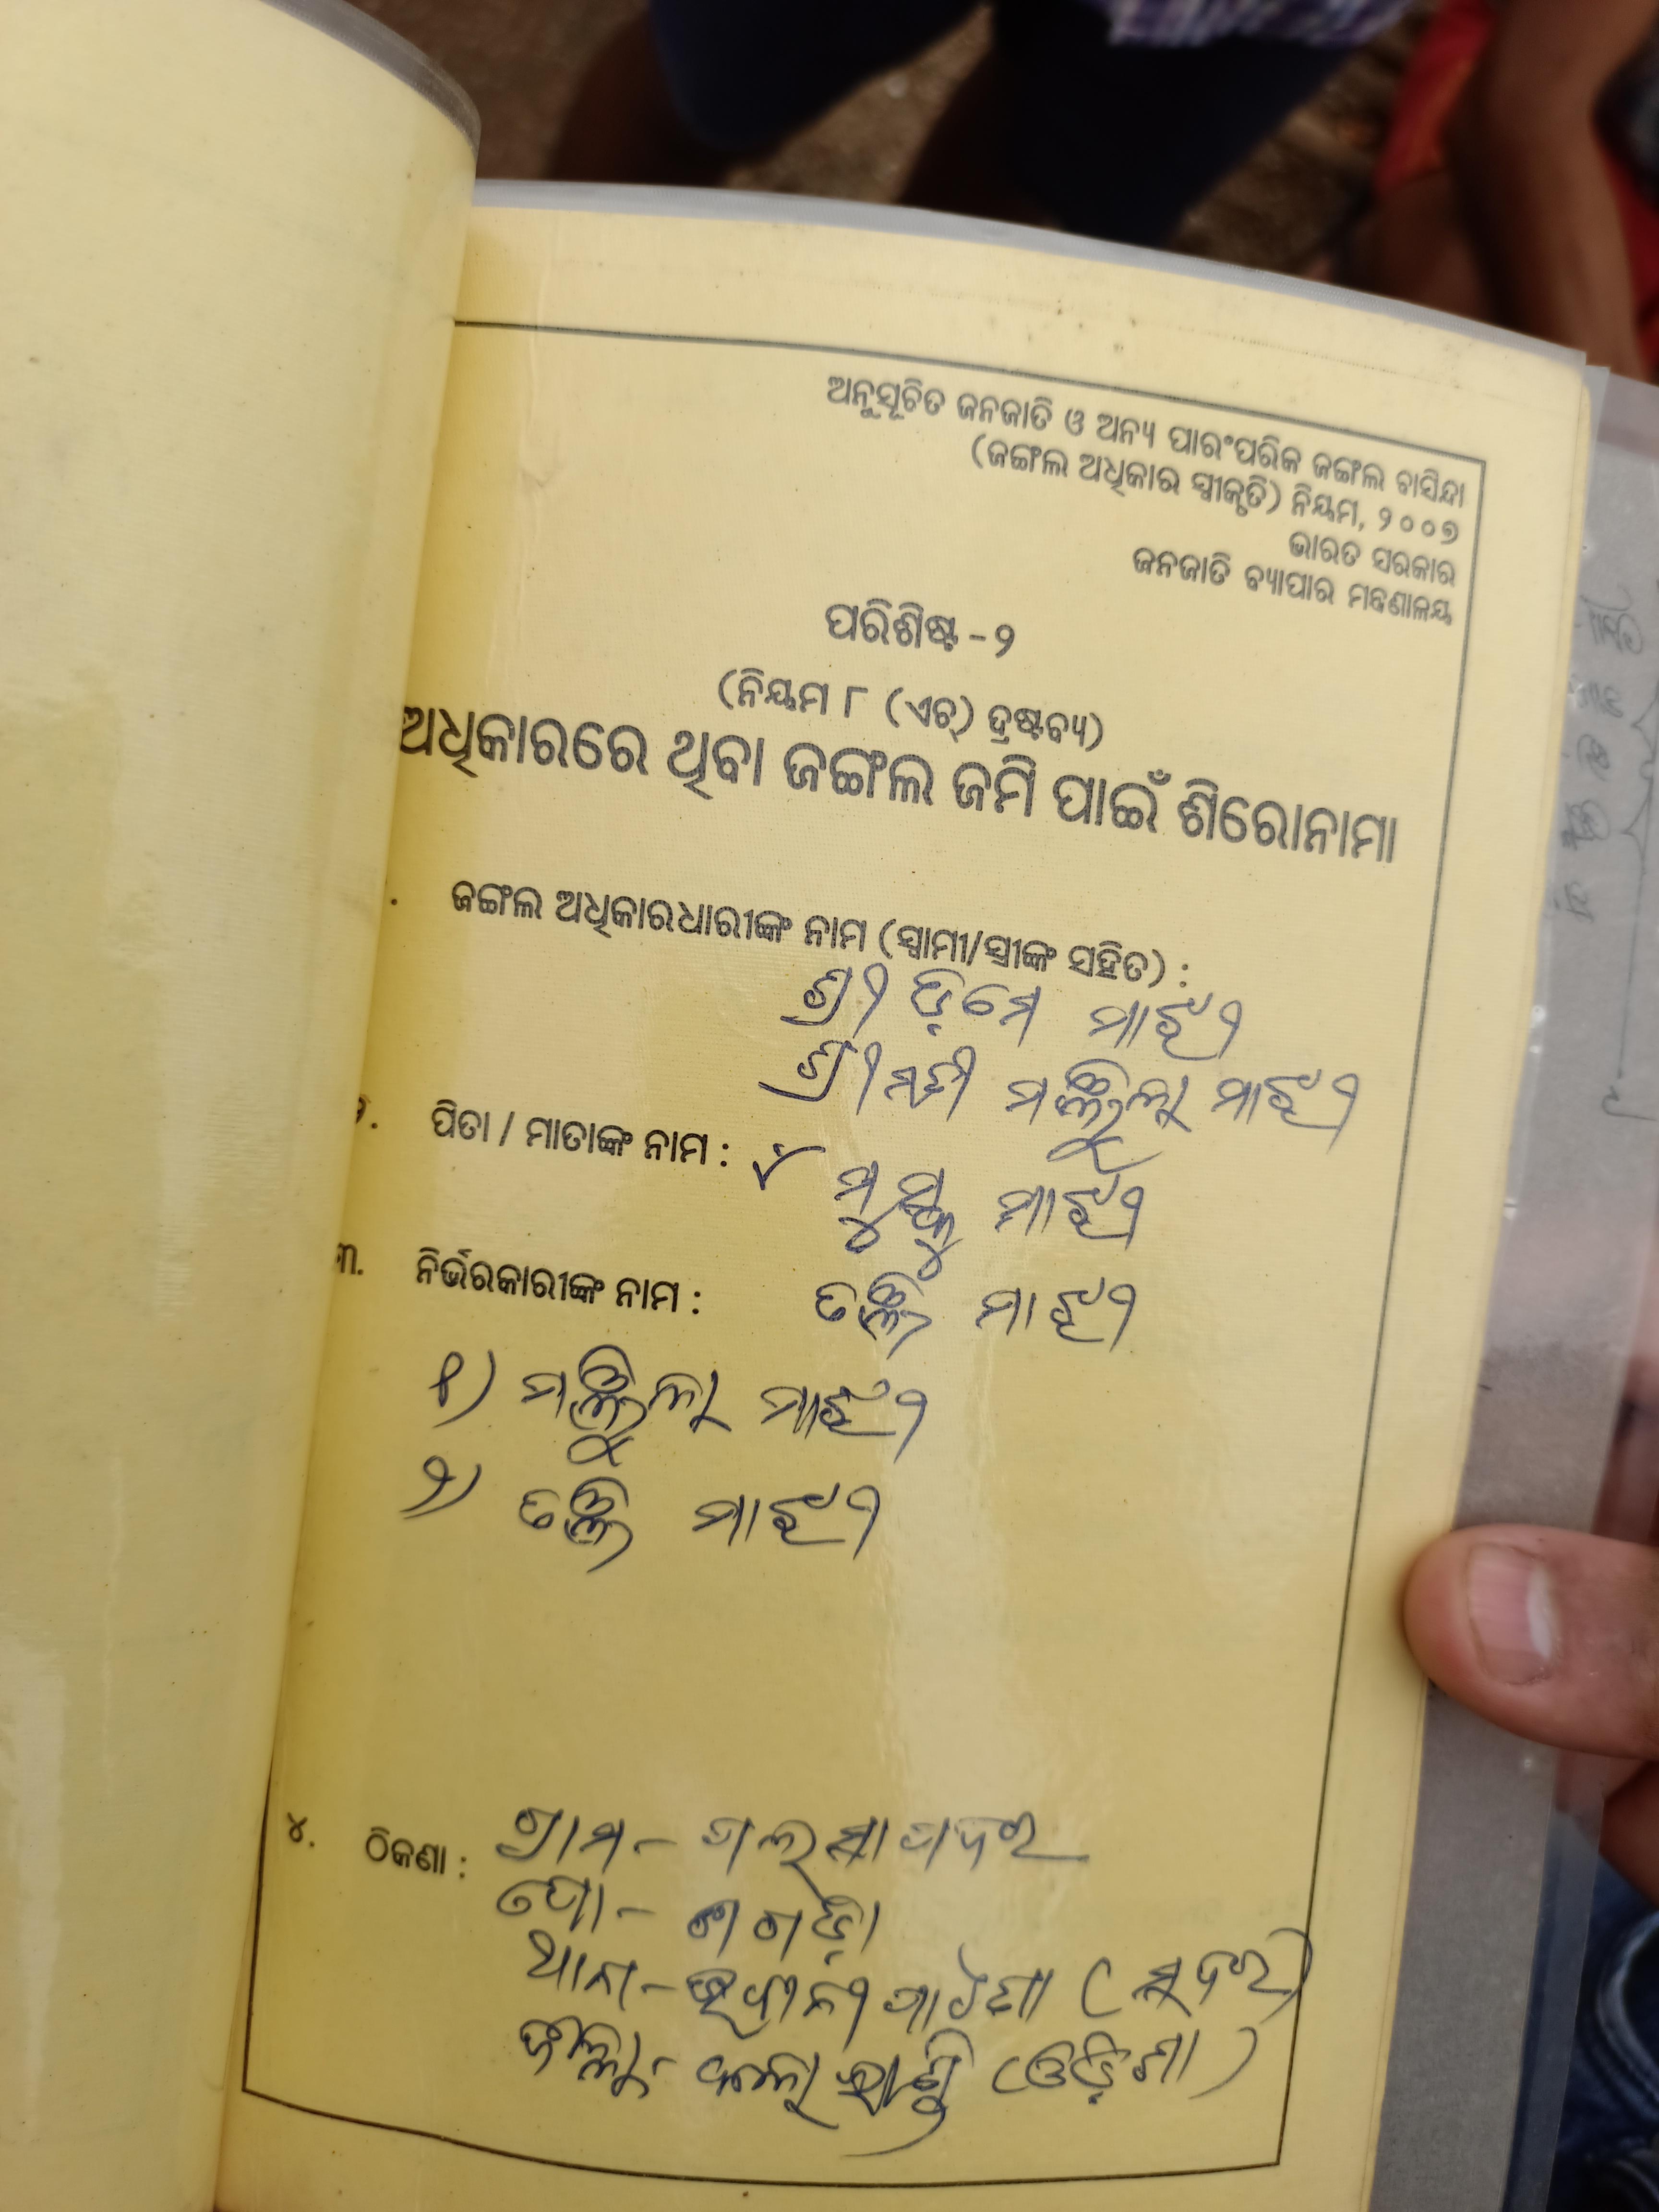 ଅନୁସୂଚିତ ଜନଜାତି ଓ ଅନ୍ୟ ପାରଂପରିକ ଜଙ୍ଗଲ ବାସିନ୍ଦା
(ଜଙ୍ଗଲ ଅଧିକାର ସ୍ୱୀକୃତି) ନିୟମ, ୨୦୦୭
ଭାରତ ସରକାର
ଜନଜାତି ବ୍ୟାପାର ମନ୍ତ୍ରଣାଳୟ
ପରିଶିଷ୍ଟ - ୨
(ନିୟମ ୮ (ଏଚ୍) ଦ୍ରଷ୍ଟବ୍ୟ)
ଅଧିକାରରେ ଥିବା ଜଙ୍ଗଲ ଜମି ପାଇଁ ଶିରୋନାମା
ଜଙ୍ଗଲ ଅଧିକାରଧାରୀଙ୍କ ନାମ (ସ୍ୱାମୀ/ସ୍ତ୍ରୀଙ୍କ ସହିତ) :
ଶ୍ରୀ ଡ଼ମେ ମାଝୀ
ଶ୍ରୀମତୀ ମାଝୀ
ପିତା / ମାତାଙ୍କ ନାମ : ମାଝୀ
୩. ନିର୍ଭରକାରୀଙ୍କ ନାମ : ମାଝୀ
୧) ମାଝୀ
୨) ମାଝୀ
୪. ଠିକଣା : ଗ୍ରାମ -
ପୋ -
ଥାନା - ଭବାନୀପାଟଣା (ସଦର)
ଜିଲ୍ଲା - କଳାହାଣ୍ଡି (ଓଡ଼ିଶା)